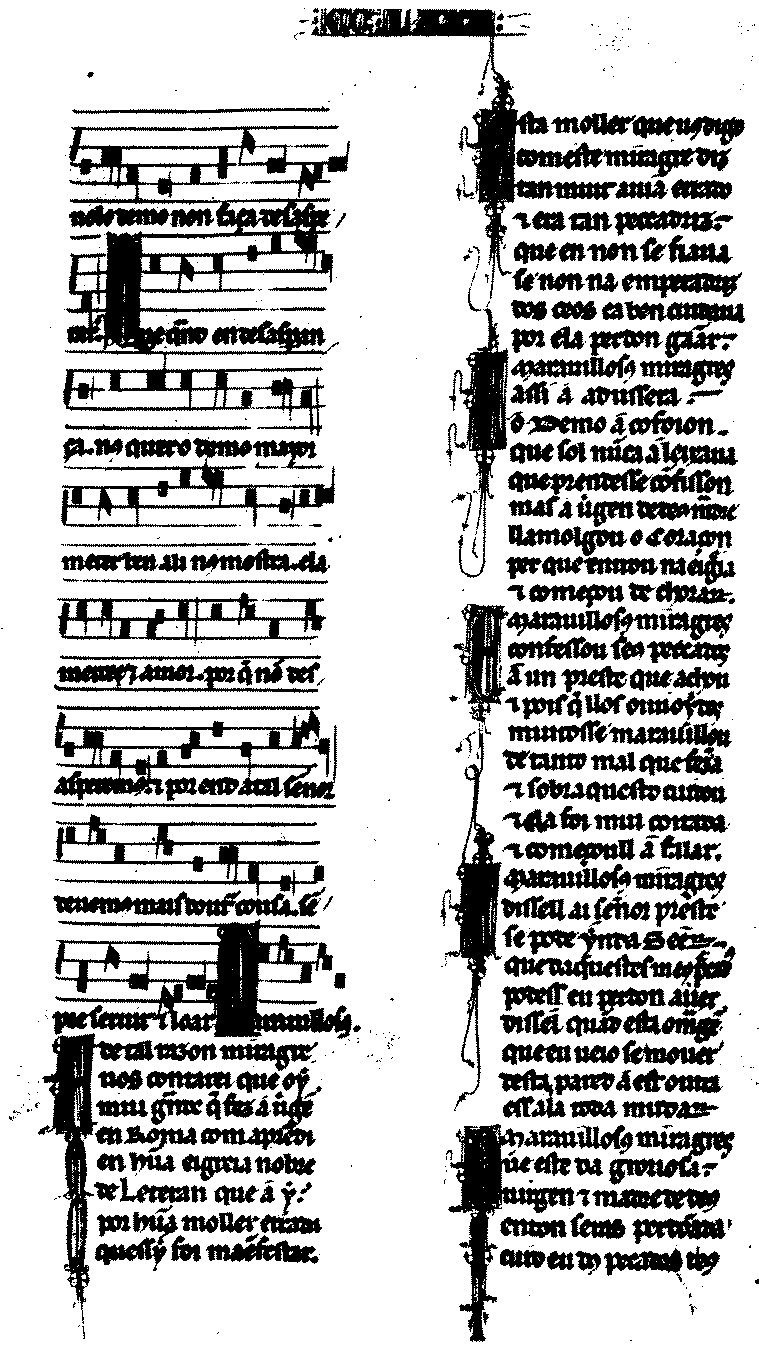 nolo demo non faça desaspe
rar. que quando en desasperan
ça. no quero demo mayor
meter ten ali nomostra. ela
mercee τ amor. por q̄ nō des
asperemos τ por end atal señor
deuemo mais doutr̄ cousa. sē
pre seruir τ loar Marauillosos.
de tal razon miragre
uos contarei que oý
mui grāde q̄ fez a uirgē
en Roma com aprēdi
en hūa eigreia nobre
de Leteran que á ý.
por hūa moller errada
quessý foi maēfestar.
sta moller que uos digo
comeste miragre diz
tan muit auia errado
τ era tan peccadriz.
que en non se fiaua
se non na emperadriz
dos ceos ca ben cuidaua
por ela perdon gāar.
Marauillosos miragres
assi a adussera
o Demo ā cōfojon
que sol nūca a leixaua
que prendesse cōfisson
mas a uirgen
llamolgou o Coraçon
per que entrou na eigreia
τ começou de chorar.
Marauillosos miragres
confessou seus peccados
ā un preste que achou
τ pois q̄ llos ouuo
muitosse marauillou
de tanto mal que fezera
τ sobraquesto cuidou
τ ela foi mui coitada
τ começoull ā fillar.
Marauillosos miragres
dissell ai señor preste
se pode
que daquestes meus peccados
podess eu perdon auer
dissel quand esta omagē
que eu ueio semouer
desta pared ā est outra
ess ala toda mudar
Marauillosos miragres
ue este da groriosa
uirgen τ madre de deus
enton serás perdōada
cuid eu dos peccados teus